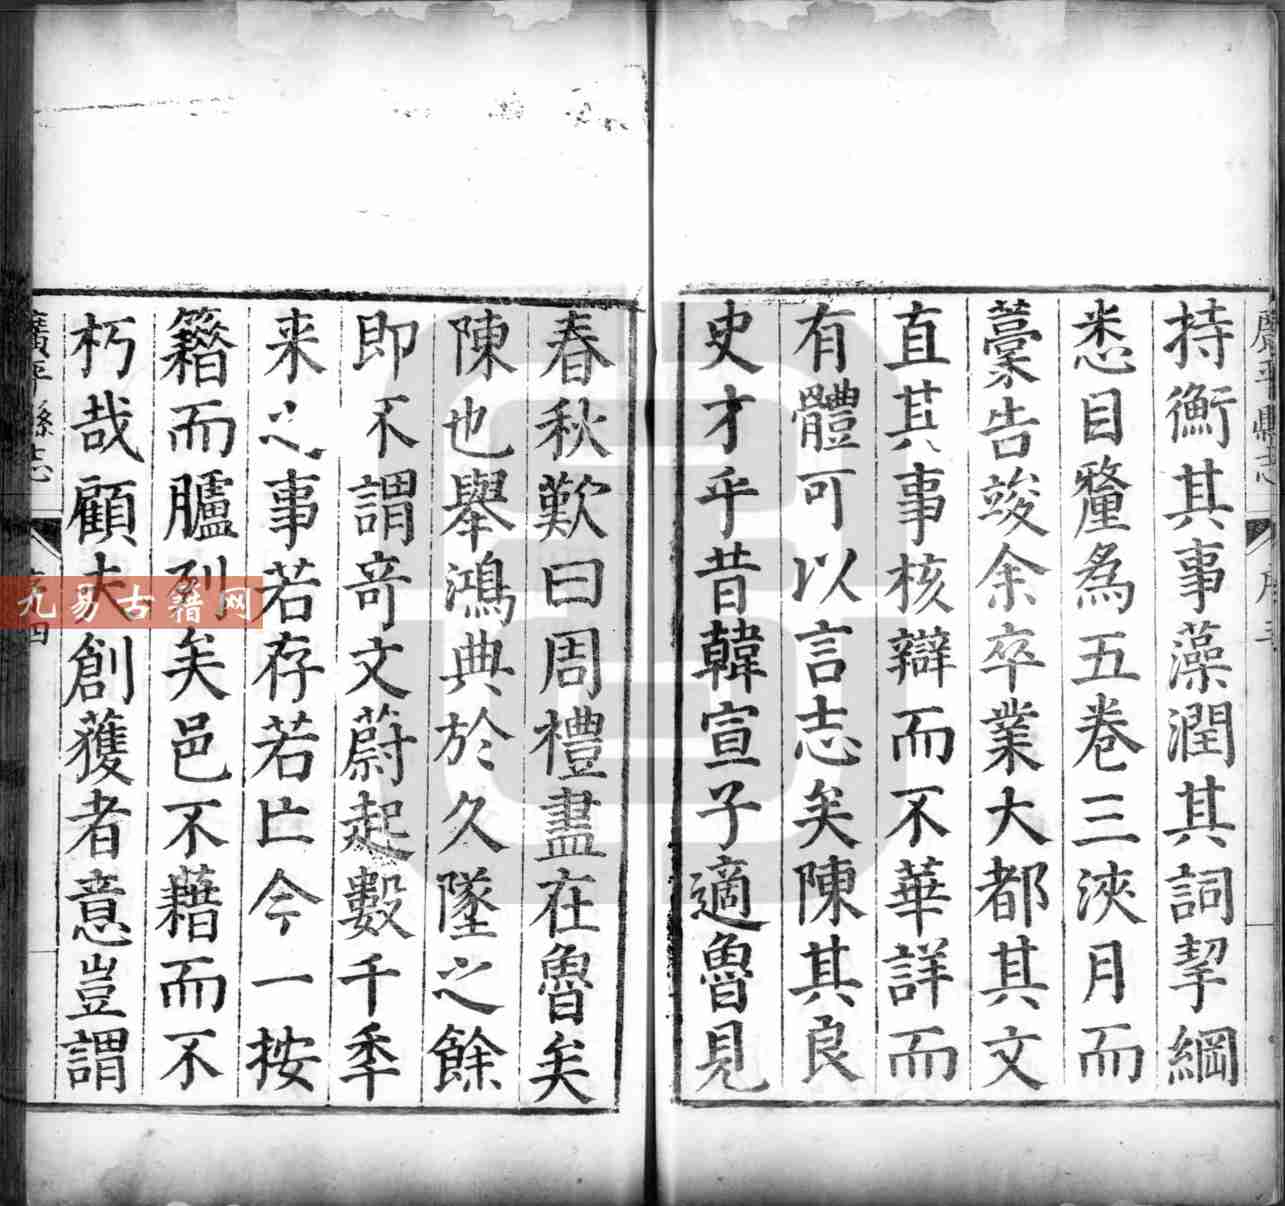 廣平縣志
序三
持衡其事藻潤其詞挈綱
悉目釐為五卷三浹月而
藁告竣余卒業大都其文
直其事核辯而不華詳而
有體可以言志矣陳其良
史才乎昔韓宣子適魯見
春秋歎曰周禮盡在魯矣
陳也舉鴻典於久墜之餘
即不謂奇文蔚起數千季
来之事若存若亡今一按
籍而臚列矣邑不藉而不
朽哉顧夫創獲者意豈謂
廣平縣志
序四
九易古籍网